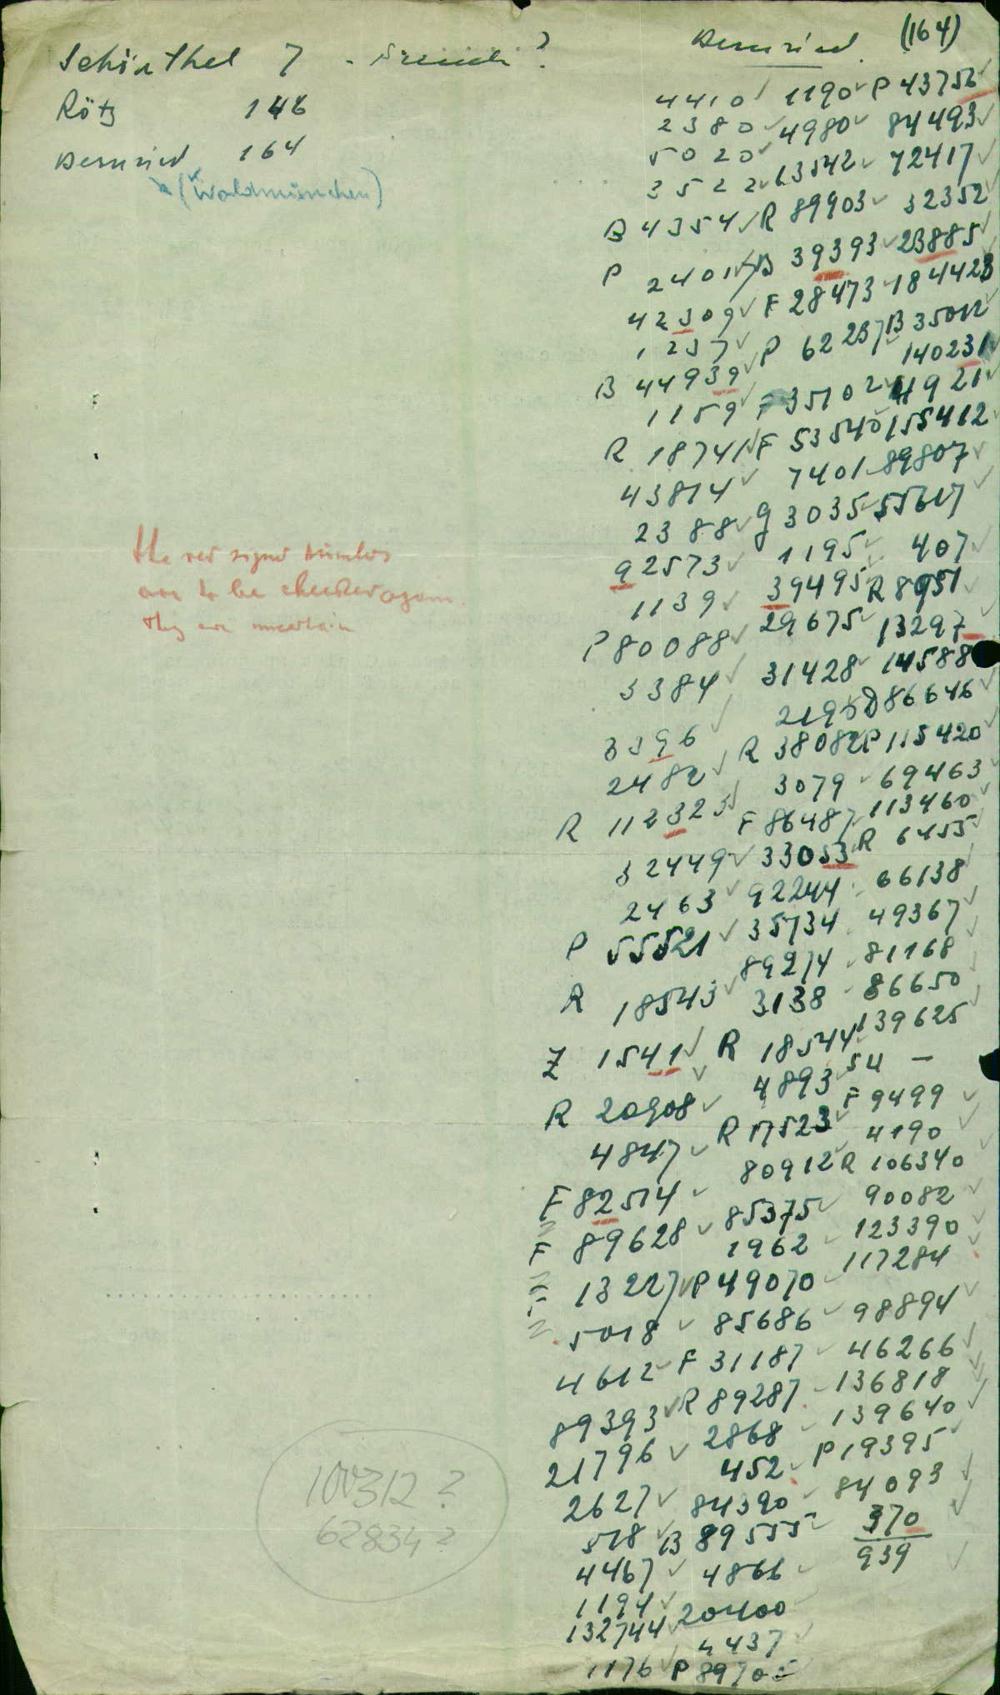 Schönthal 7
Rötz 146
Bernried 164
(Waldmünchen)
the red signed numbers
are to be checked again.
they are uncertain
100312 ?
62834 ?
Bernried (164)
4410 1190 P 43756
2380 4980 84493
5020 63542 72417
3522 R 89903 32352
B 4354 B 39393 23885
P 2401 F 28473 184423
42309 P 62237 B 35012
1237 140231
B 44939 F 35102 4921
1159 F 53540 155412
R 18741 7401 89807
43814 g 3035 55617
2388 1195 407
92573 39495 R 8951
1139 29675 13297
P 80088 31428 14588
3384 86646
3396 R 38082 P 115420
2482 3079 69463
R 112323 F 86487 113460
32449 33053 R 6455
2463 92244 66138
P 55521 35734 49367
89274 81168
R 18543 3138 86650
Z 1541 R 18544 139625
R 20908 4893 54 –
4847 R 17523 F 9499
F 82514 80912 4190
F 89628 85375 R 106340
13227 1962 90082
5018 P 49070 123390
4612 85686 117284
89393 F 31187 98894
21796 R 89287 46266
2627 2868 136818
518 452 139640
4467 84390 P 19395
1194 B 89555 84093
132744 4866 370
1176 20400 939
4437